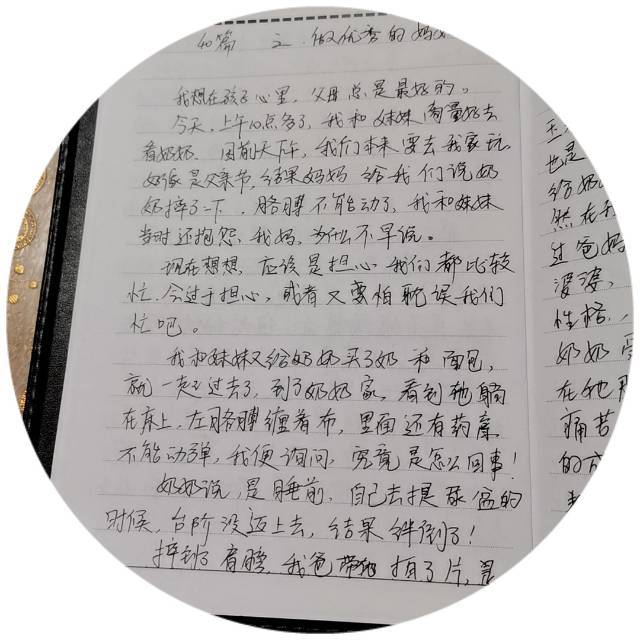 40篇 之.做优秀的妈妈
我想在孩子心里,父母总是最好的。
今天,上午10点多了,我和妹妹商量好去
看奶奶.因前天下午,我们本来要去我家玩
好像是父亲节,结果妈妈给我们说奶
奶摔了一下.胳膊不能动了,我和妹妹
当时还抱怨,我妈,为什么不早说。
现在想想,应该是担心我们都比较
忙.会过于担心,或者又要怕耽误我们
忙吧。
我和妹妹又给奶奶买了奶和面包,
就一起过去了,到了奶奶家,看到她躺
在床上,左胳膊缠着布,里面还有药膏
不能动弹,我便询问,究竟是怎么回事!
奶奶说,是睡前,自己去提尿盆的
时候,台阶没迈上去,结果绊倒了!
摔到了胳膊,我爸带她拍了片,是
玉
也是
给奶
然在
过爸妈
婆婆,
性格.,
奶奶
在她
痛苦
的方